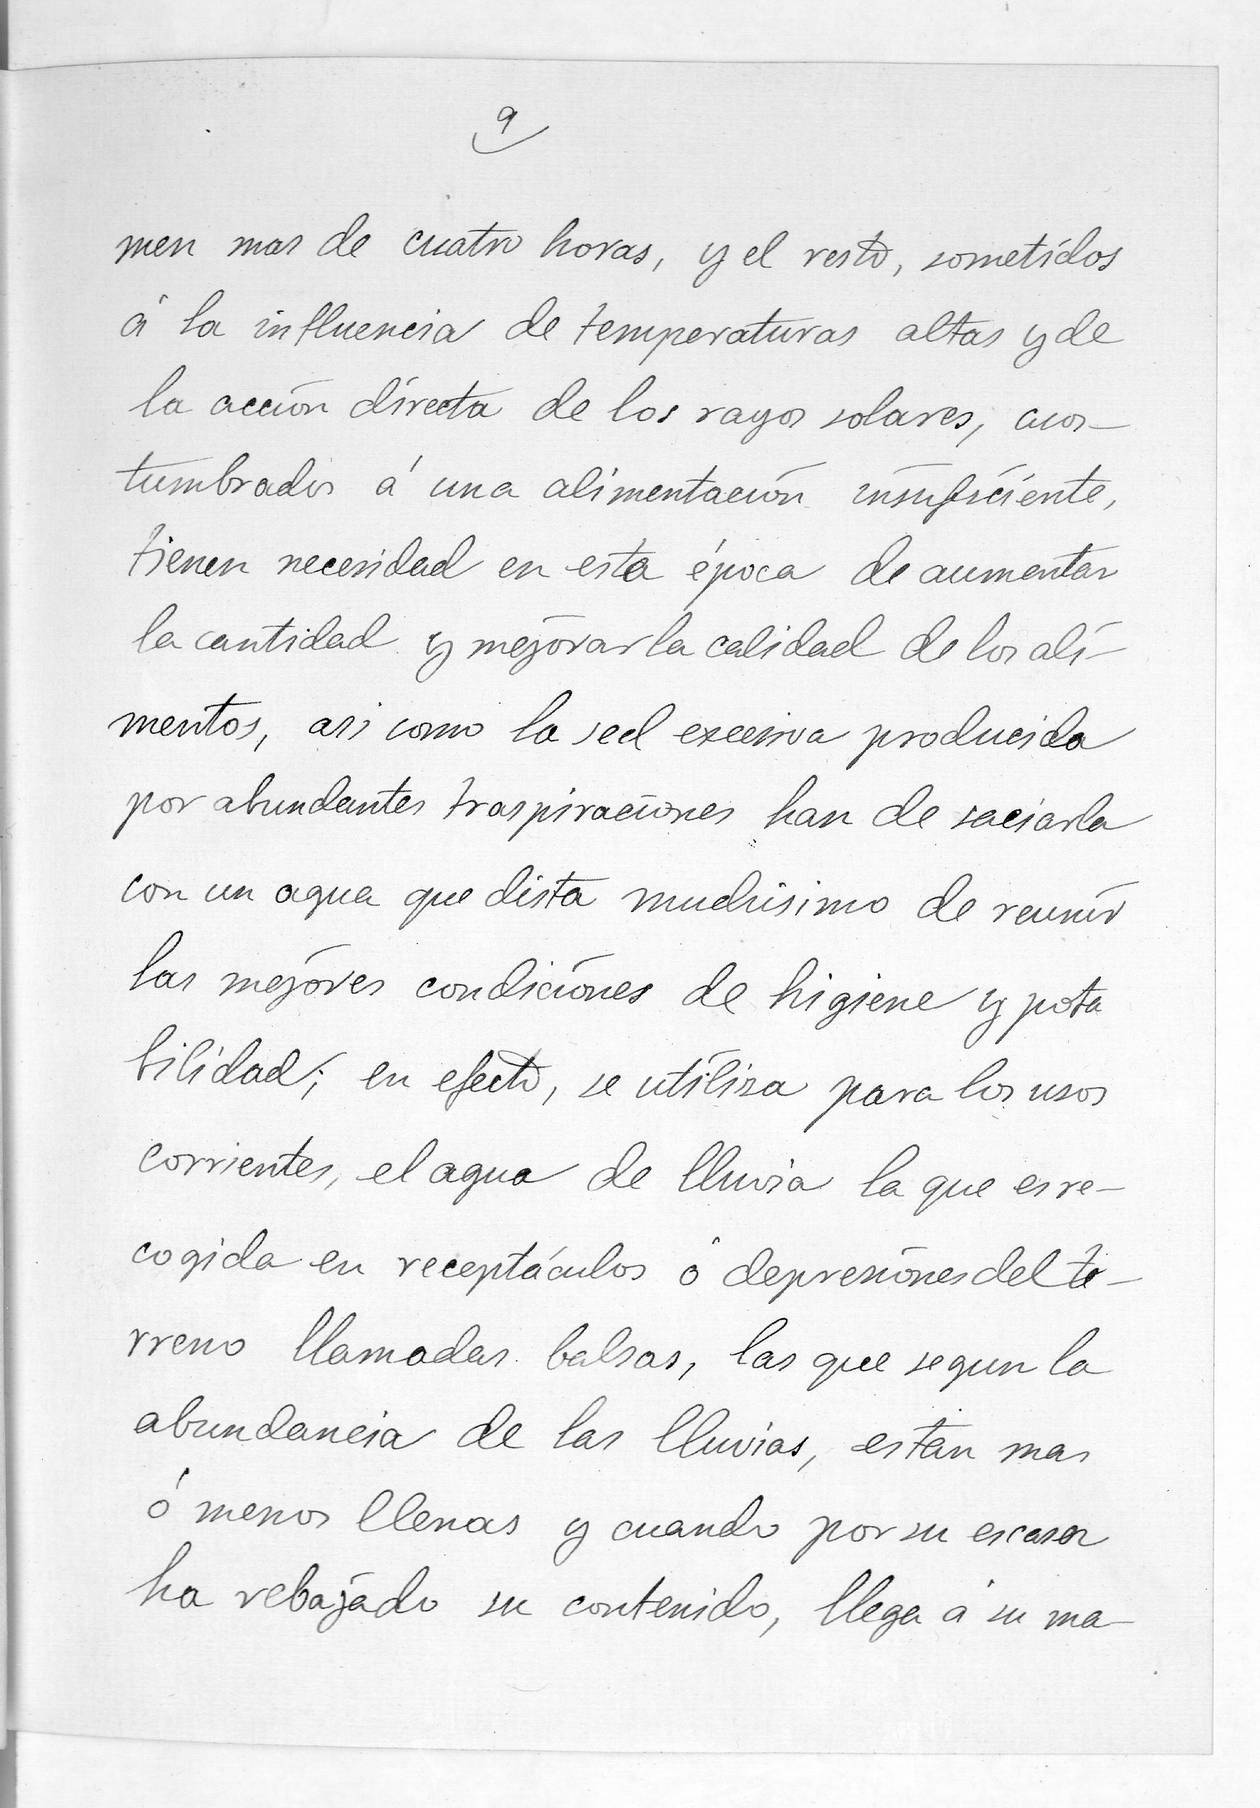 9
men mas de cuatro horas, y el resto, sometidos
á la influencia de temperaturas altas y de
la acción directa de los rayos solares, acos-
tumbrados á una alimentación insuficiente,
tienen necesidad en esta época de aumentar
la cantidad y mejorar la calidad de los ali-
mentos, asi como la sed excesiva producida
por abundantes traspiraciones han de saciarla
con un agua que dista muchisimo de reunir
las mejores condiciones de higiene y pota
bilidad; en efecto, se utiliza para los usos
corrientes, el agua de lluvia la que es re-
cogida en receptáculos ó depresiones del te-
rreno llamadas balsas, las que segun la
abundancia de las lluvias, están mas
ó menos llenas y cuando por su escasez
ha rebajado su contenido, llega á su ma-